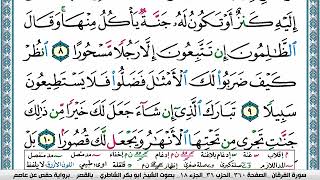 إِلَيْهِ كَنزٌ أَوْ تَكُونُ لَهُۥ جَنَّةٌ يَأْكُلُ مِنْهَا ۚ وَقَالَ
ٱلظَّٰلِمُونَ إِن تَتَّبِعُونَ إِلَّا رَجُلًا مَّسْحُورًا ٨ ٱنظُرْ
كَيْفَ ضَرَبُوا۟ لَكَ ٱلْأَمْثَٰلَ فَضَلُّوا۟ فَلَا يَسْتَطِيعُونَ
سَبِيلًا ٩ تَبَارَكَ ٱلَّذِىٓ إِن شَآءَ جَعَلَ لَكَ خَيْرًا مِّن ذَٰلِكَ
جَنَّٰتٍ تَجْرِى مِن تَحْتِهَا ٱلْأَنْهَٰرُ وَيَجْعَل لَّكَ قُصُورًۢا ١٠
سورة الفرقان الصفحة ٣٦٠ الحزب ٣٦ الجزء ١٨ بصوت الشيخ ابو بكر الشاطري بالقصر رواية حفص عن عاصم